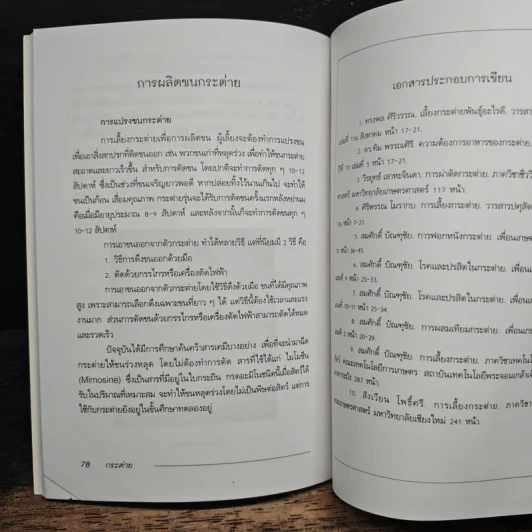 การผลิตขนกระต่าย
การแปรงขนกระต่าย
การเลี้ยงกระต่ายเพื่อการผลิตขน ผู้เลี้ยงจะต้องทำการแปรงขน
เพื่อเอาสิ่งสกปรกที่ติดขนออก เช่น พวกขนเก่าที่หลุดร่วง เพื่อทำให้ขนกระต่าย
สะอาดและยาวเร็วขึ้น สำหรับการตัดขน โดยปกติจะทำการตัดขนทุก ๆ 10-12
สัปดาห์ ซึ่งเป็นช่วงที่ขนเจริญยาวพอดี หากปล่อยทิ้งไว้นานเกินไป จะทำให้
ขนเป็นก้อน เสื่อมคุณภาพ กระต่ายรุ่นจะได้รับการตัดขนครั้งแรกหลังหย่านม
คือเมื่อมีอายุประมาณ 8-9 สัปดาห์ และหลังจากนั้นก็จะทำการตัดขนทุก ๆ
10-12 สัปดาห์
การเอาขนออกจากตัวกระต่าย ทำได้หลายวิธี แต่ที่นิยมมี 2 วิธี คือ
1. วิธีการดึงขนออกด้วยมือ
2. ตัดด้วยกรรไกรหรือเครื่องตัดไฟฟ้า
การเอาขนออกจากตัวกระต่ายโดยใช้วิธีดึงด้วยมือ ขนที่ได้มีคุณภาพ
สูง เพราะสามารถเลือกดึงเฉพาะขนที่ยาว ๆ ได้ แต่วิธีนี้ต้องใช้เวลาและแรง
งานมาก ส่วนการตัดขนด้วยกรรไกรหรือเครื่องตัดไฟฟ้าสามารถตัดได้หมด
และรวดเร็ว
ปัจจุบันได้มีการศึกษาค้นคว้าสารเคมีบางอย่าง เพื่อที่จะนำมาฉีด
กระต่ายให้ขนร่วงหลุด โดยไม่ต้องทำการตัด สารที่ใช้ได้แก่ ไมโมซีน
(Mimosine) ซึ่งเป็นสารที่มีอยู่ในใบกระถิน กรดอะมิโนชนิดนี้เมื่อสัตว์ได้
รับในปริมาณที่เหมาะสม จะทำให้ขนหลุดร่วงโดยไม่เป็นพิษต่อสัตว์ แต่การ
ใช้กับกระต่ายยังอยู่ในขั้นศึกษาทดลองอยู่
78 กระต่าย
เอกสารประกอบการเขียน
1. ทรงพล ศิริวรรณ. เลี้ยงกระต่ายพันธุ์อะไรดี. วารสาร
เล่มที่ 114 สิงหาคม หน้า 17-21.
2. ดร.ทิม พรรณศิริ. ความต้องการอาหารของกระต่าย.
ปีที่ 10 เล่มที่ 5 หน้า 17-21.
3. วีรยุทธ์ เลาหะจินดา. การผ่าตัดกระต่าย. ภาควิชาชีววิ
ศาสตร์ มหาวิทยาลัยเกษตรศาสตร์ 117 หน้า.
4. ศิริพรรณ โมรากบ. การเลี้ยงกระต่าย. วารสารปศุสัต
หน้า 7-21.
5. สมศักดิ์ บัณฑุชัย. การฟอกหนังกระต่าย. เพื่อนเกษต
หน้า 36-45.
6. สมศักดิ์ บัณฑุชัย. โรคและปรสิตในกระต่าย. เพื่อนเ
เล่มที่ 9 หน้า 25-33.
7. สมศักดิ์ บัณฑุชัย. โรคและปรสิตในกระต่าย. เพื่อนเก
เล่มที่ 10-11 หน้า 25-34.
8. สมศักดิ์ บัณฑุชัย. การผสมเทียมกระต่าย. เพื่อนเกษ
เล่มที่ 5 หน้า 20-29.
9. สมศักดิ์ บัณฑุชัย. การเลี้ยงกระต่าย. ภาควิชาเทคโนโ
สัตว์ คณะเทคโนโลยีการเกษตร สถาบันเทคโนโลยีพระจอมเกล้าเจ้
ลาดกระบัง 287 หน้า.
10. สังเวียน โพธิ์ศรี. การเลี้ยงกระต่าย. ภาควิชา
คณะเกษตรศาสตร์ มหาวิทยาลัยเชียงใหม่ 241 หน้า.